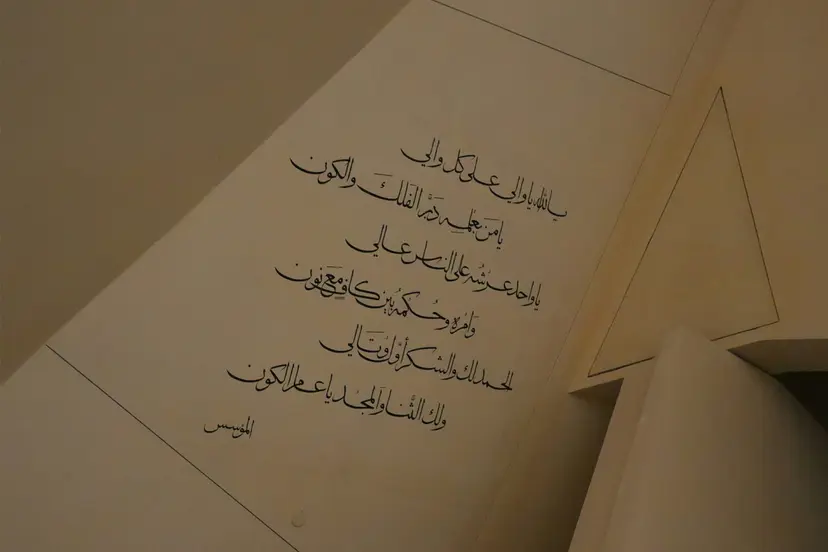 يا لله يا والي على كل والي
يا من بعلمه دبَّر الفلك والكون
يا واحد عرشه على الناس عالي
وامره وحكمه بين كافٍ مع نون
الحمد لك والشكر أوّل وتالي
ولك الثَّنا والمجد يا عالم الكون
المؤسس